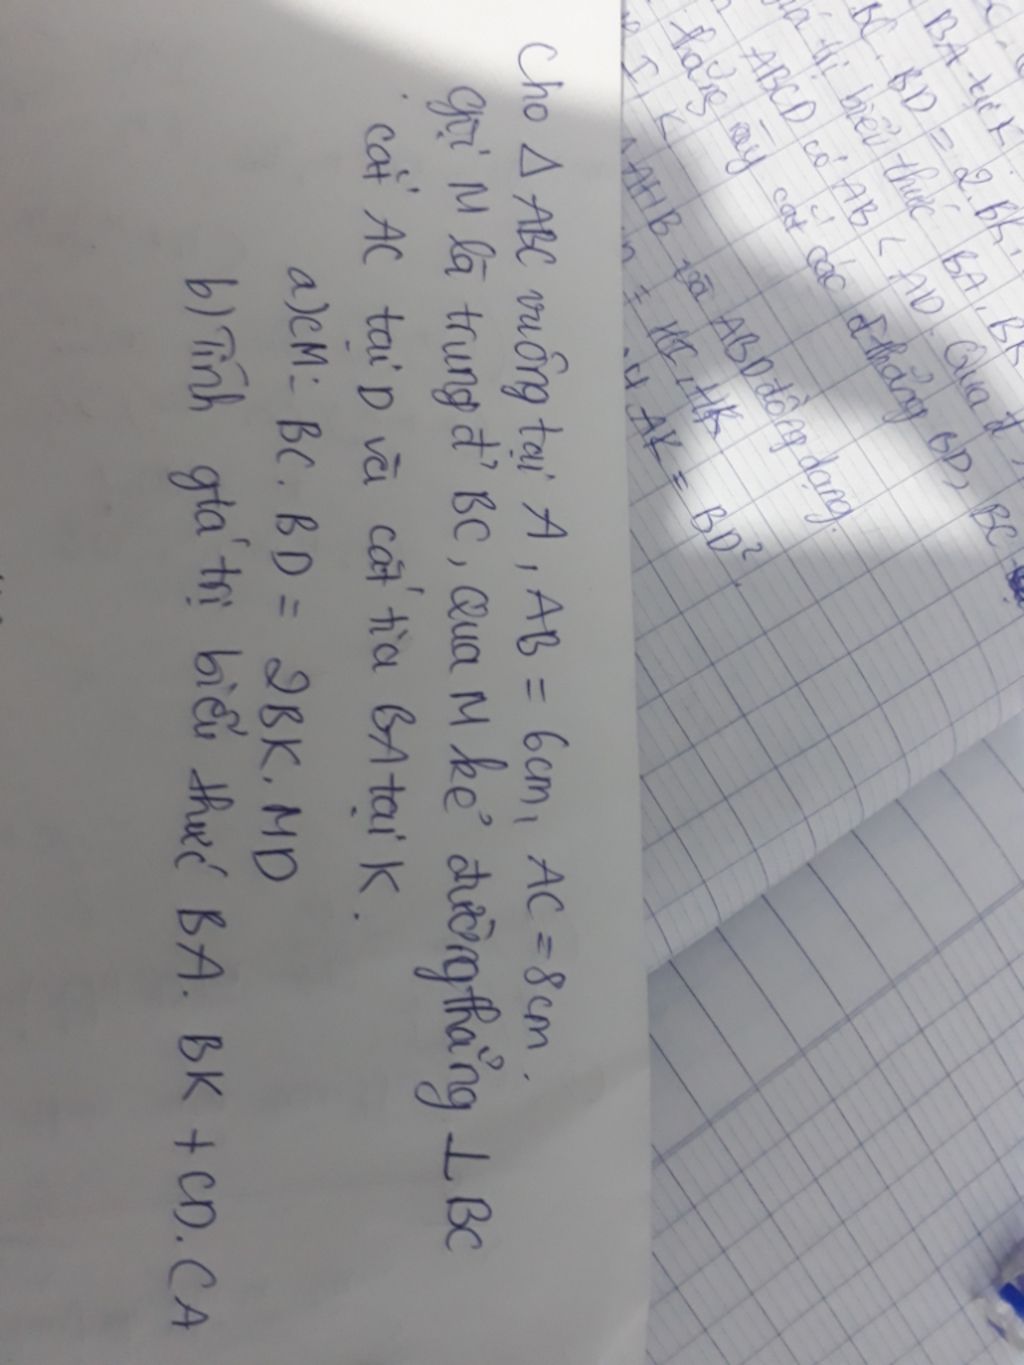 Cho Δ ABC vuông tại A, AB = 6cm, AC = 8cm.
gọi M là trung đ' BC, Qua M kẻ đường thẳng ⊥ BC
cắt AC tại D và cắt tia BA tại K.
a) CM: BC. BD = 2BK. MD
b) Tính giá trị biểu thức BA. BK + CD. CA
BA tại K.
BC. BD = 2. BK.
trị biểu thức BA. BK
ABCD có AB < AD. Qua đ
thẳng này cắt các đ thẳng BD, BC
I, K
AHB và ABD đồng dạng.
= HI. HK
AK = BD²